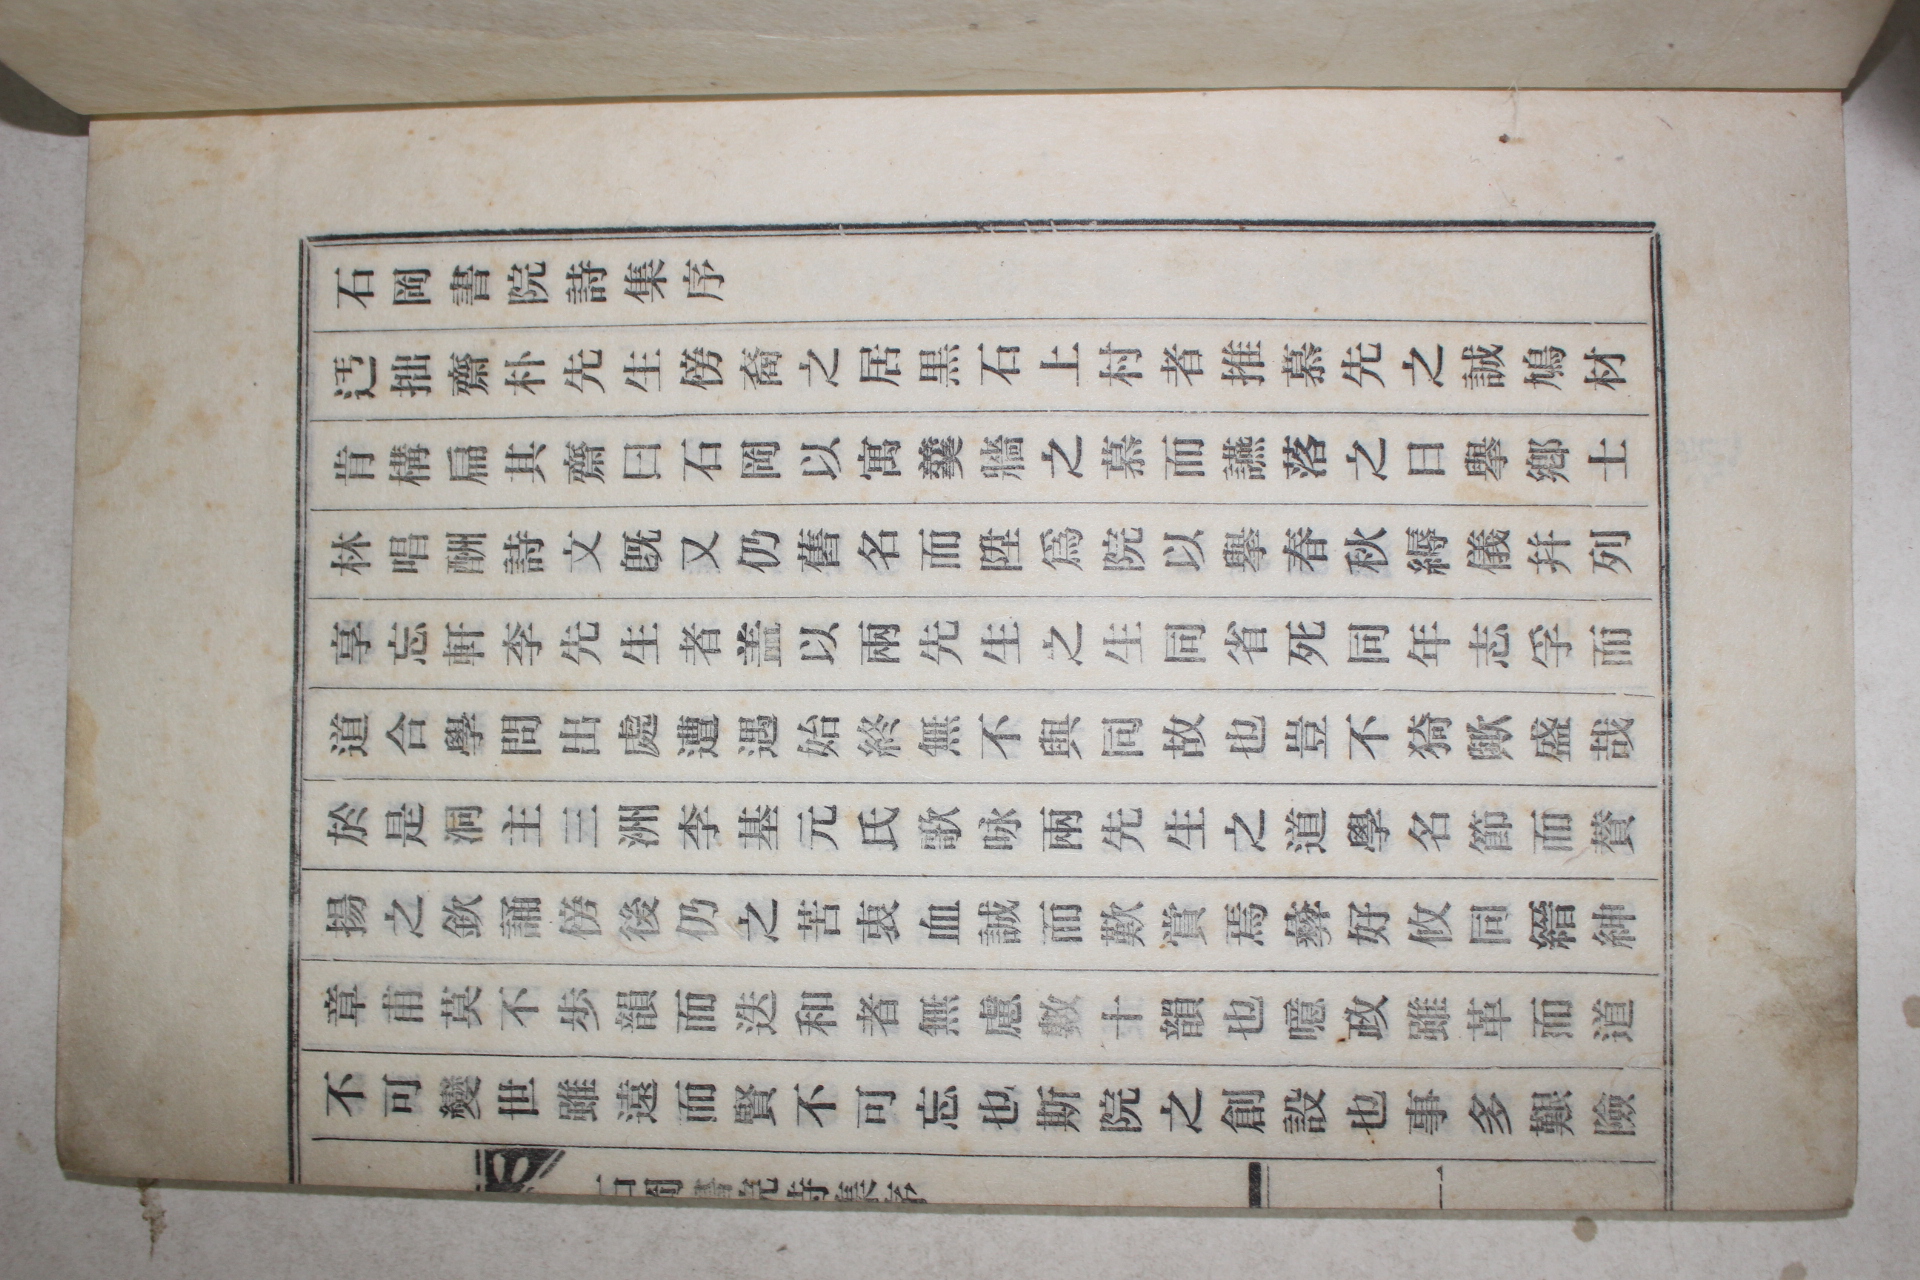 石岡書院詩集序
迃拙齋朴先生傍裔之居黒石上村者推慕先之誠鳩材
肯構扁其齋曰石岡以寓羹牆之慕而讌落之日擧鄕士
林唱酬詩文旣又仍舊名而陞爲院以擧春秋縟儀幷列
享忘軒李先生者盖以兩先生之生同省死同年志孚而
道合學問出處遭遇始終無不與同故也豈不猗歟盛哉
於是洞主三洲李基元氏歌咏兩先生之道學名節而賛
揚之欽誦傍後仍之苦衷血誠而歎賞焉彝好攸同縉紳
章甫莫不步韻而迭和者無慮數十韻也噫政雖革而道
不可變世雖遠而賢不可忘也斯院之創設也事多艱險
石岡書院詩集序 一